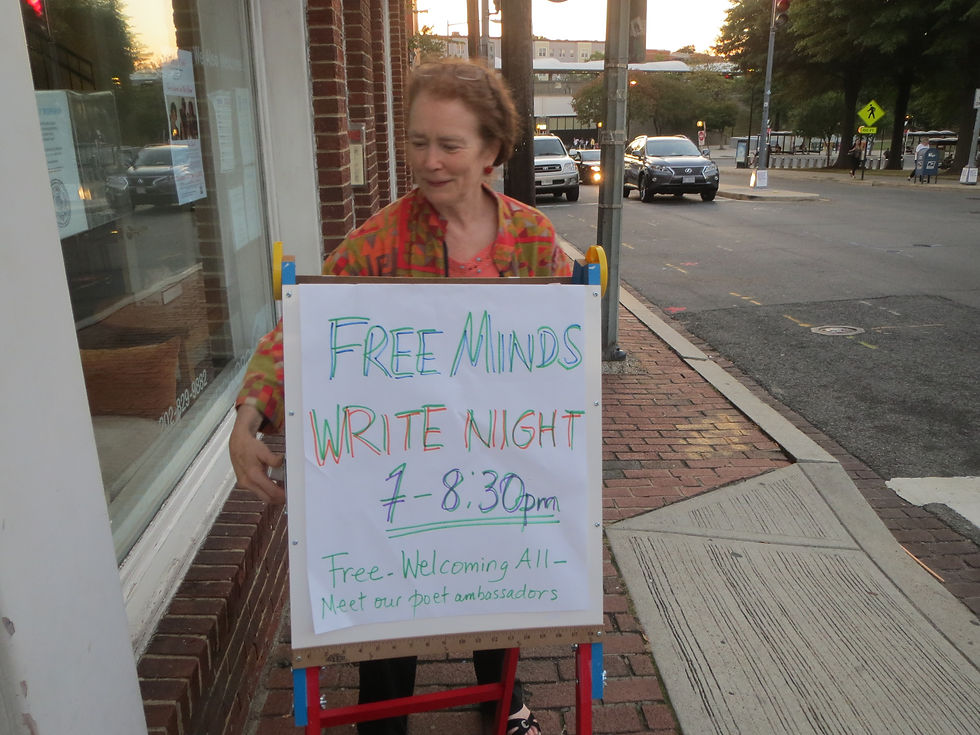 FREE MINDS
WRITE NIGHT
7-8:30pm
Free-Welcoming All-
Meet our poet ambassadors
202-829-9882